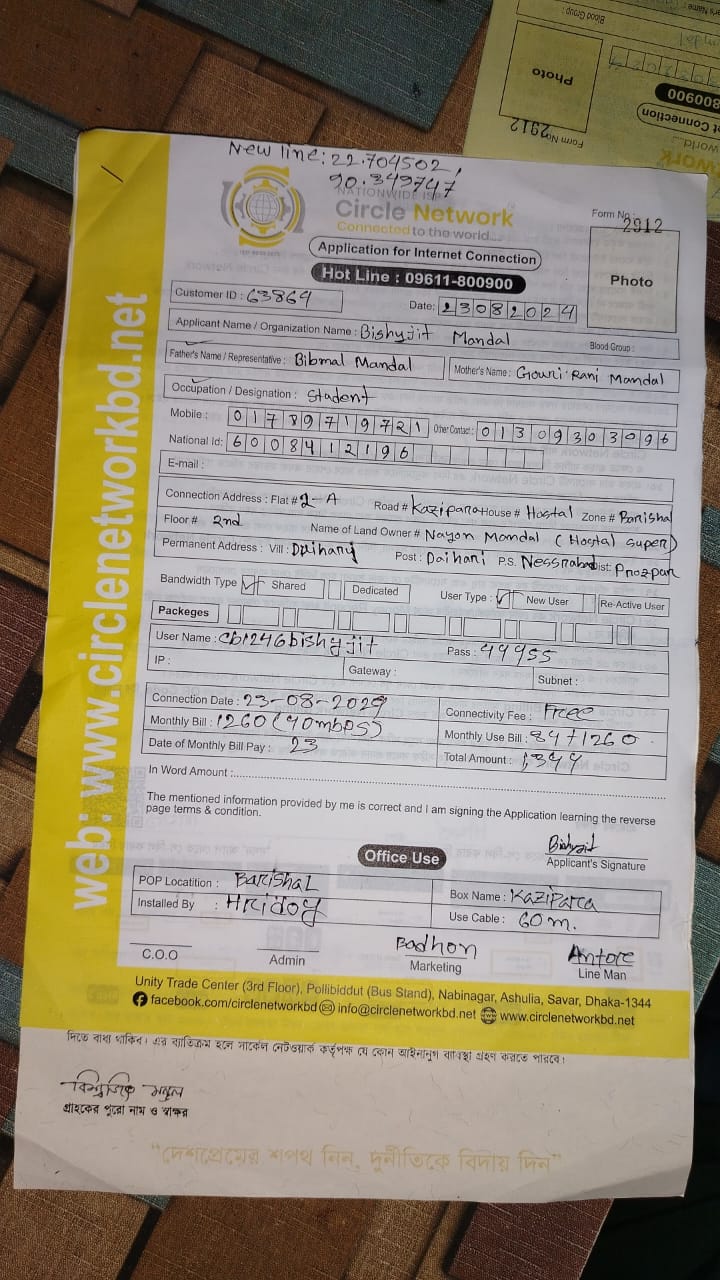 New line: 22.704502,
90.349747
NATIONWIDE ISP
Circle Network
Connected to the world...
Form No: 2912
Application for Internet Connection
Hot Line : 09611-800900
Photo
Customer ID : 63864
Date: 23082024
Applicant Name / Organization Name : Bishyjit Mandal
Blood Group :
Father's Name / Representative : Bibmal Mandal
Mother's Name : Gouri Rani Mandal
Occupation / Designation : Student
Mobile : 01789719721 Other Contact : 01309303096
National Id: 6008412196
E-mail :
Connection Address : Flat # 2-A Road # Kazipara House # Hostal Zone # Barishal
Floor # 2nd Name of Land Owner # Nayon Mandal (Hostal super)
Permanent Address : Vill : Daihari Post : Daihani P.S. Dist:
Bandwidth Type Shared Dedicated User Type : New User Re-Active User
Packeges
User Name : cb1246bishyjit Pass : 49955
IP : Gateway : Subnet :
Connection Date : 23-08-2024 Connectivity Fee : Free
Monthly Bill : 1260 (40mbps) Monthly Use Bill : 84+1260
Date of Monthly Bill Pay : 23 Total Amount : 1,344
In Word Amount :
The mentioned information provided by me is correct and I am signing the Application learning the reverse
page terms & condition.
Bishyjit
Applicant's Signature
Office Use
POP Locatition : Barishal Box Name : Kazipara
Installed By : Hridoy Use Cable : 60 m.
Badhon Antore
C.O.O Admin Marketing Line Man
Unity Trade Center (3rd Floor), Pollibiddut (Bus Stand), Nabinagar, Ashulia, Savar, Dhaka-1344
facebook.com/circlenetworkbd info@circlenetworkbd.net www.circlenetworkbd.net
web: www.circlenetworkbd.net
দিতে বাধ্য থাকিব। এর ব্যতিক্রম হলে সার্কেল নেটওয়ার্ক কর্তৃপক্ষ যে কোন আইনানুগ ব্যবস্থা গ্রহণ করতে পারবে।
বিশ্বজিৎ মন্ডল
গ্রাহকের পুরো নাম ও স্বাক্ষর
“দেশপ্রেমের শপথ নিন, দুর্নীতিকে বিদায় দিন”
Blood Group :
Photo
Form No: 2912